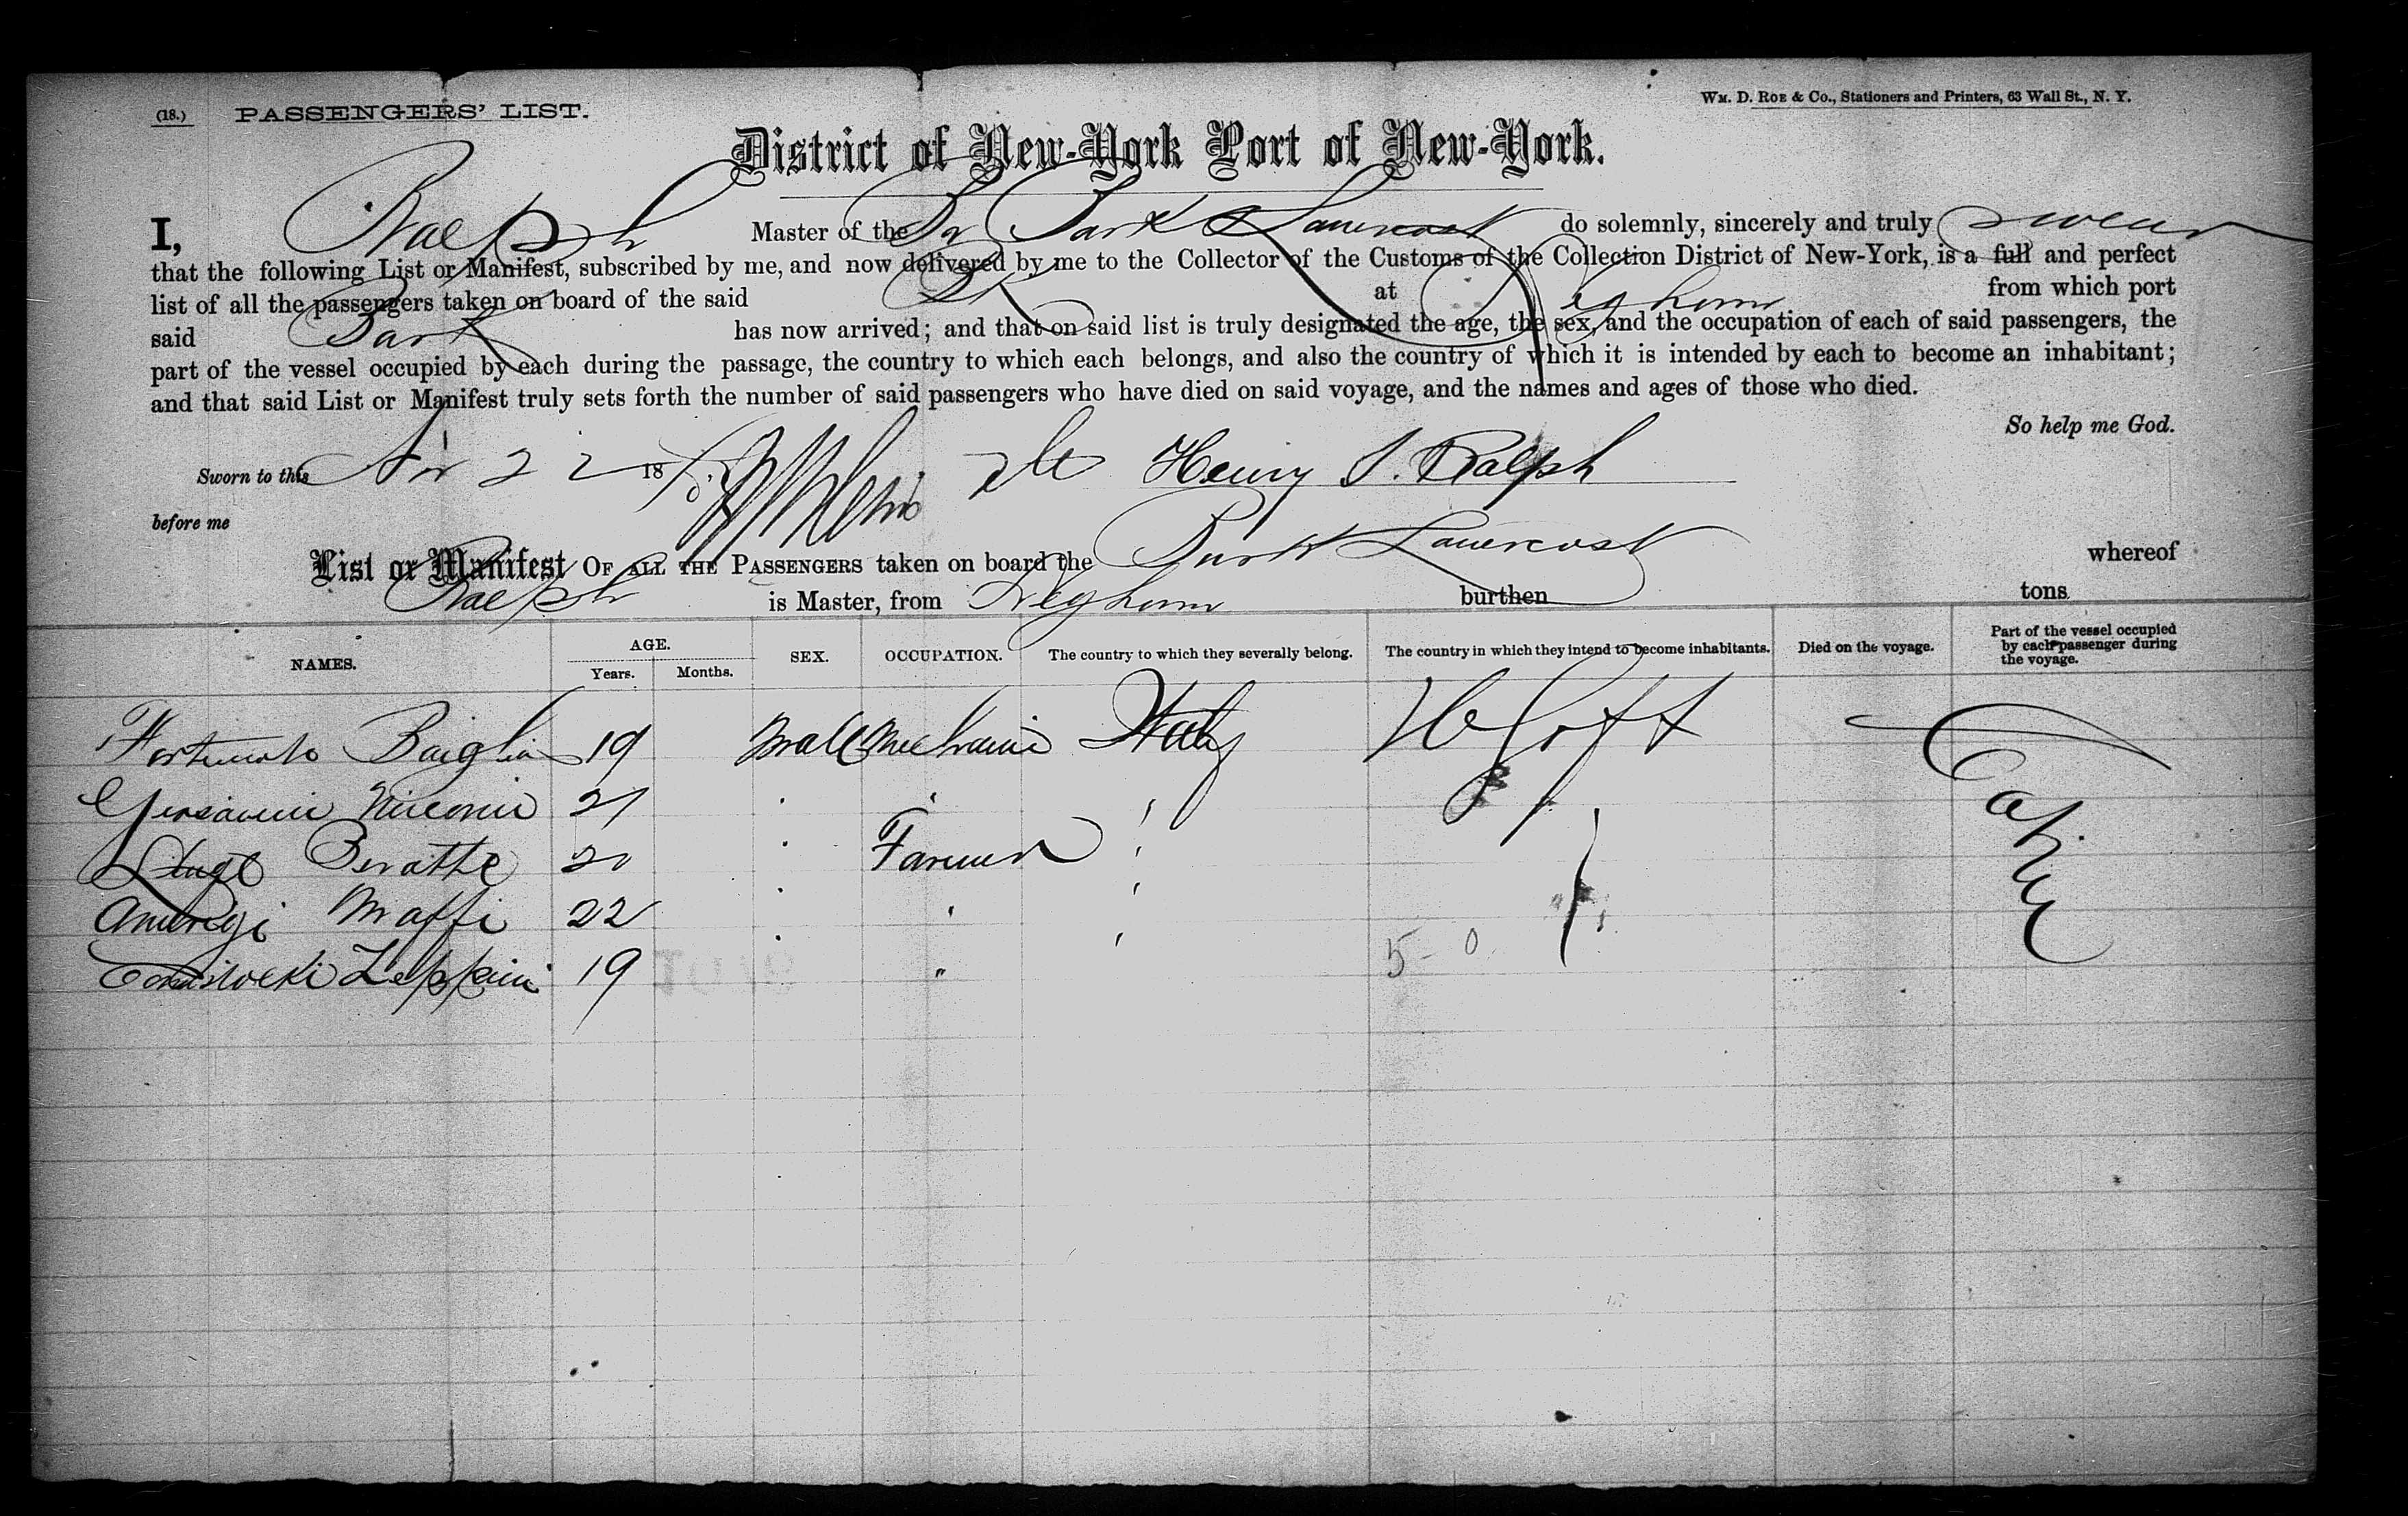 (18.) PASSENGERS' LIST.
Wm. D. Roe & Co., Stationers and Printers, 63 Wall St., N. Y.
District of New-York Port of New-York.
I, Ralph Master of the Br Bark Lanercost do solemnly, sincerely and truly swear
that the following List or Manifest, subscribed by me, and now delivered by me to the Collector of the Customs of the Collection District of New-York, is a full and perfect
list of all the passengers taken on board of the said Bk at Leghorn from which port
said Bark has now arrived; and that on said list is truly designated the age, the sex, and the occupation of each of said passengers, the
part of the vessel occupied by each during the passage, the country to which each belongs, and also the country of which it is intended by each to become an inhabitant;
and that said List or Manifest truly sets forth the number of said passengers who have died on said voyage, and the names and ages of those who died.
So help me God.
Sworn to this Nov 22 18 Henry S. Ralph
before me
List or Manifest OF ALL THE PASSENGERS taken on board the Bark Lanercost whereof
Ralph is Master, from Leghorn burthen tons
NAMES. AGE. Years. Months. SEX. OCCUPATION. The country to which they severally belong. The country in which they intend to become inhabitants. Died on the voyage. Part of the vessel occupied by each passenger during the voyage.
Fortunato 19 Male Mechanic Italy
21
20 Farmer
Maffi 22
19 "
5 - 0
Cabin